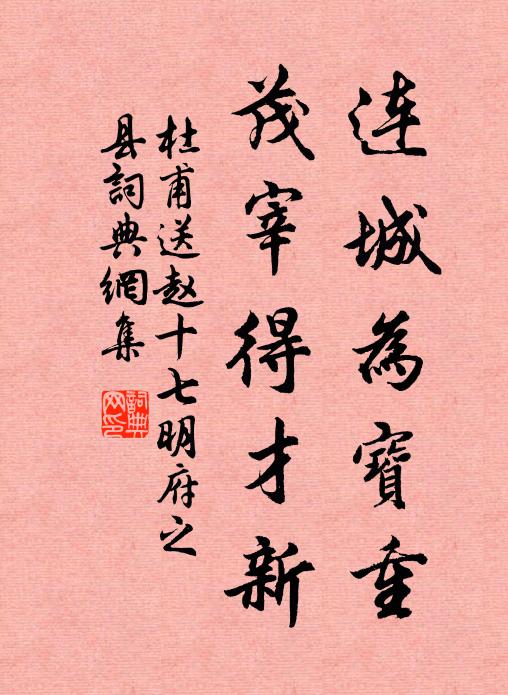 连城為寶重
茂宰得才新
杜甫送赵十七明府之
县詞典網集
詞典
网印